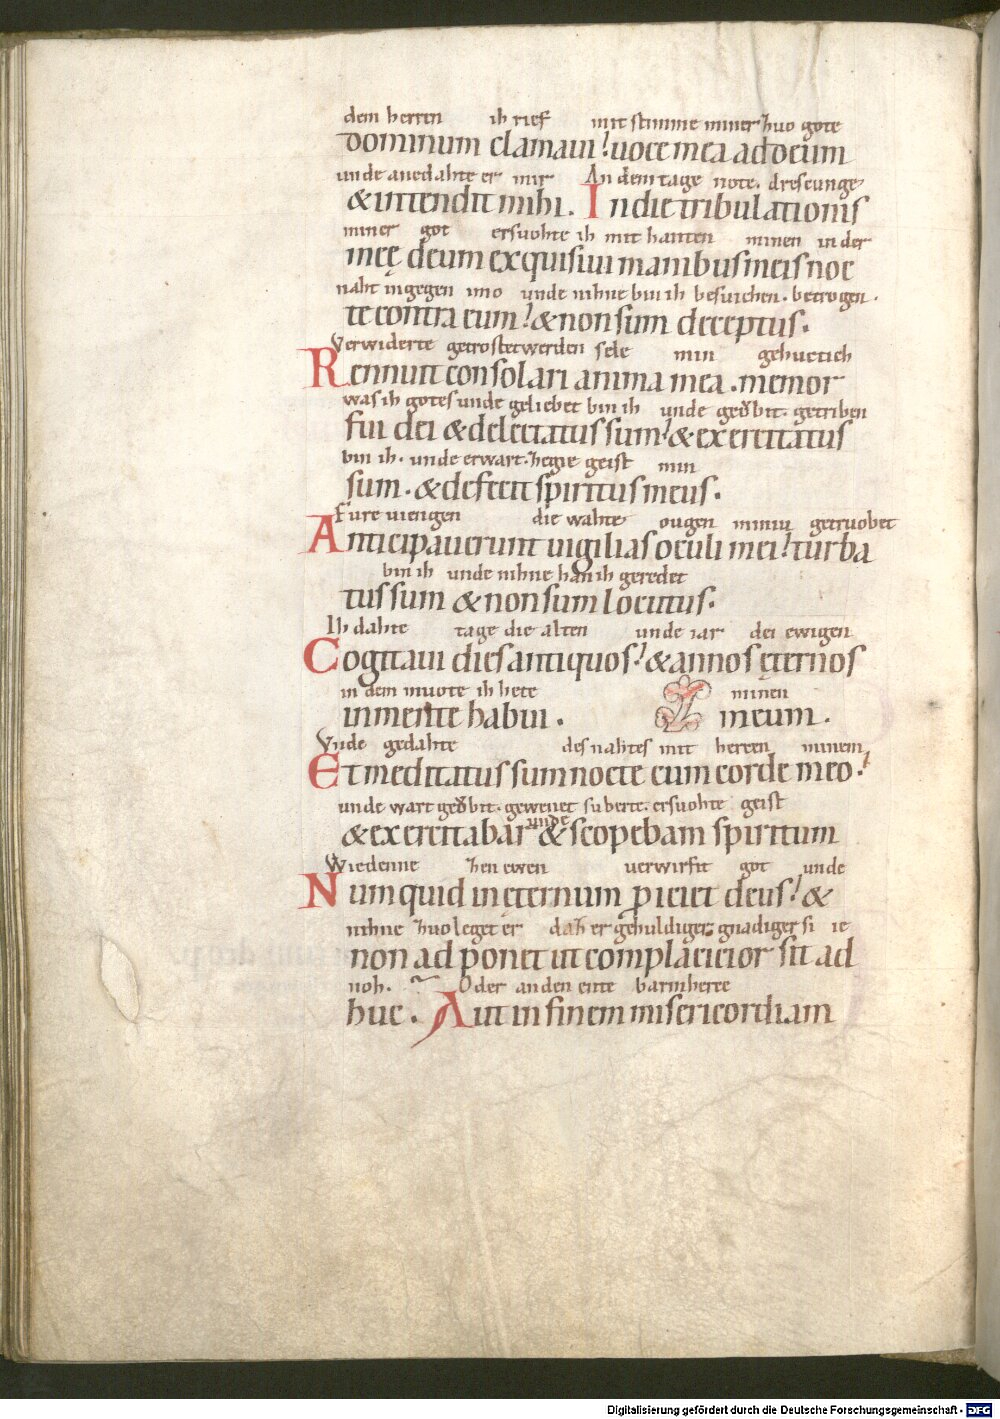 dem herren ih rief mit stimme miner zuo gote
dominum clamaui! uoce mea ad deum
unde anedahte er mir An dem tage note. dreseunge
& intendit mihi. In die tribulationis
miner got ersuohte ih mit hanten minen in der
meę deum exquisiui manibus meis noc
naht ingegen imo unde nihne bin ih besuichen. betrogen.
te contra eum! & non sum deceptus.
Verwiderte getrostet werden sele min gehuctich
Rennuit consolari anima mea. memor
was ih gotes unde geliebet bin ih unde geŏbit. getriben
fui dei & delectatus sum! & exercitatus
bin ih. unde erwart. zegie geist min
sum. & defecit spiritus meus.
Fure uiengen die wahte ougen miniu getruobet
Anticipauerunt uigilias oculi mei! turba
bin ih unde nihne han ih geredet
tus sum & non sum locutus.
Ih dahte tage die alten unde iar dei ewigen
Cogitaui dies antiquos! & annos ęternos
in dem muote ih hete minen
in mente habui. meum.
Unde gedahte des nahtes mit herzen minem
Et meditatus sum nocte cum corde meo!
unde wart geŏbit. gewenet suberte. ersuohte geist
unde
& exercitabar & scopebam spiritum
Wiedenne zen ewen uerwirfit got unde
Numquid in ęternum ꝓiciet deus! &
nihne zuo leget er daz er gehuldiger gnadiger si ie
non adponet ut complacicior sit ad
noh. Oder an den ente barmherze
huc. Aut in finem misericordiam
Digitalisierung gefördert durch die Deutsche Forschungsgemeinschaft - DFG